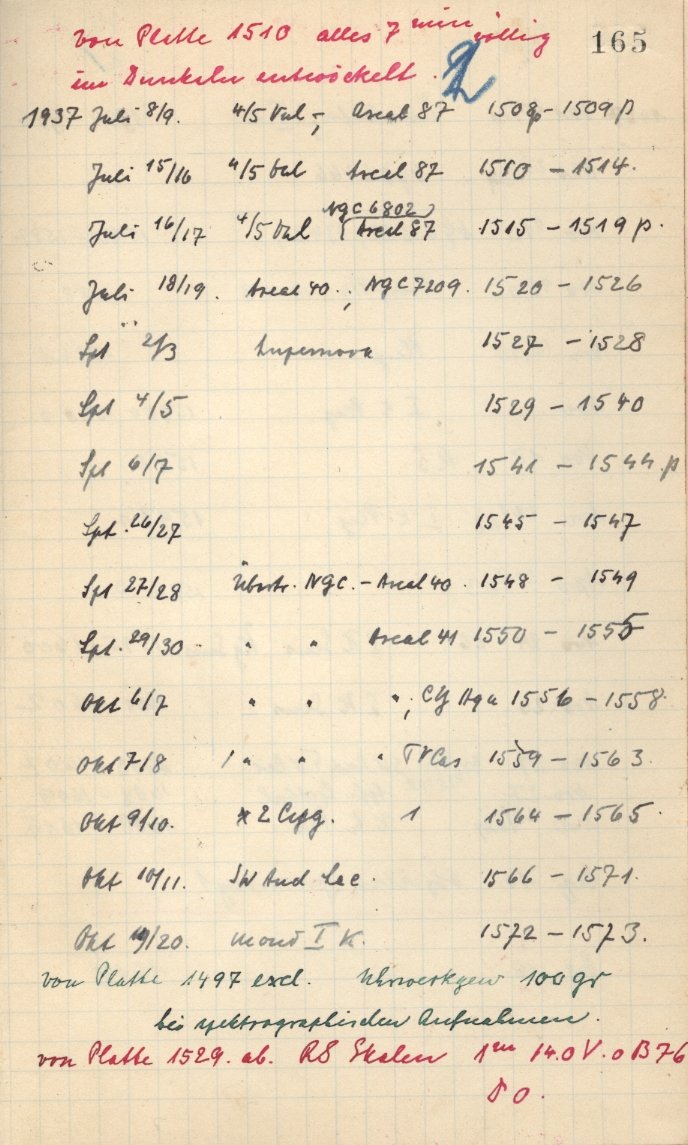 von Platte 1510 alles 7 min völlig 165
im Dunkeln entwickelt.
1937 Juli 8/9. 4/5 Vul -, Areal 87 1508p - 1509p
Juli 15/16 4/5 Vul Areal 87 1510 - 1514.
NGC 6802
Juli 16/17 4/5 Vul Areal 87 1515 - 1519 p.
Juli 18/19. Areal 40., NGC 7209. 1520 - 1526
Spt 2/3 Supernova 1527 - 1528
Spt 4/5 1529 - 1540
Spt 6/7 1541 - 1544.p
Spt. 26/27 1545 - 1547
Spt 27/28 Übertr. NGC. - Areal 40. 1548 - 1549
Spt. 29/30 " " Areal 41 1550 - 1555
Okt 6/7 " " " ; CY Aqu 1556 - 1558
Okt 7/8 " " " TV Cas 1559 - 1563.
Okt 9/10. 1 1564 - 1565.
Okt 10/11. SW And Lac. 1566 - 1571.
Okt 19/20. Mond I K. 1572 - 1573.
von Platte 1497 excl. Uhrwerkgew 100 gr
bei spektrographischen Aufnahmen.
von Platte 1529. ab. RS Skalen 1m 14.0 V. 0 B 76
D 0.